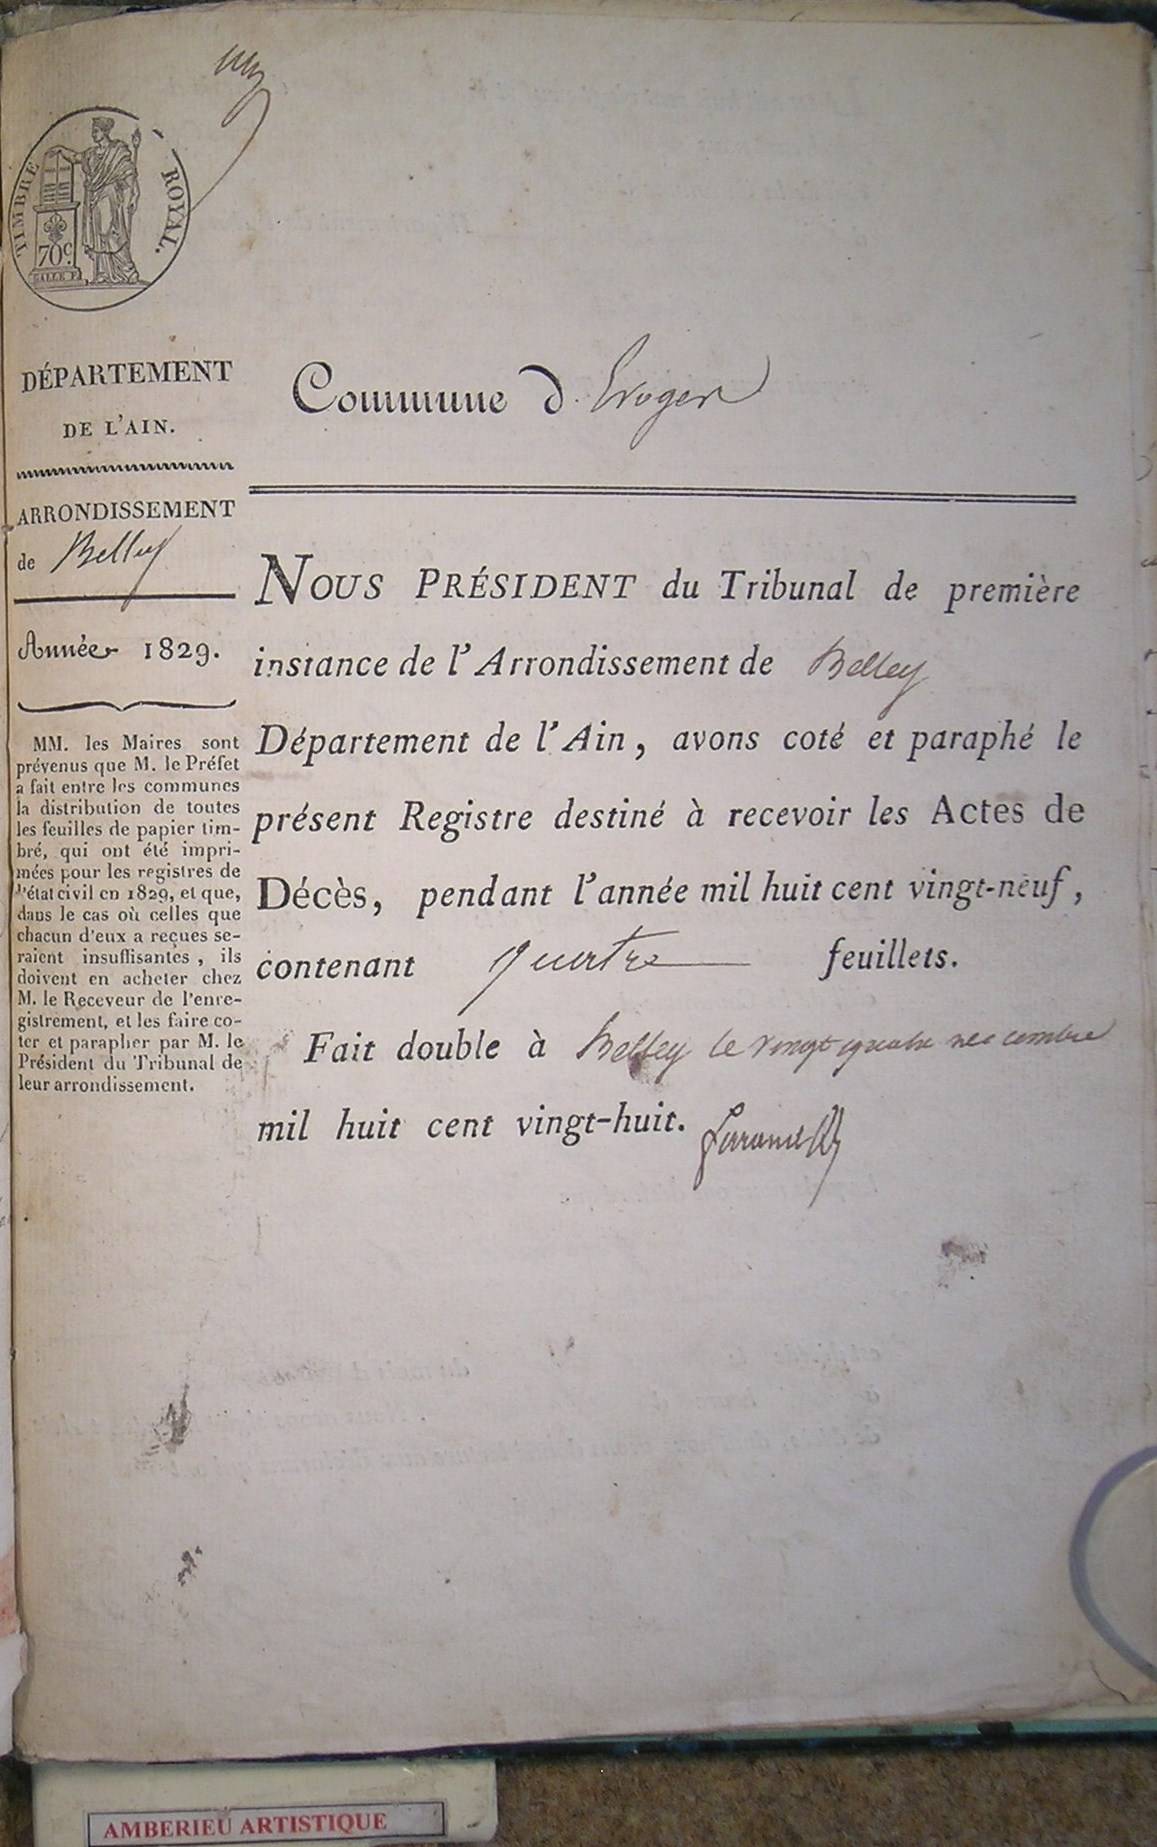 TIMBRE ROYAL.
70 c.
DÉPARTEMENT
DE L'AIN.
ARRONDISSEMENT
de Belley
Année 1829.
MM. les Maires sont
prévenus que M. le Préfet
a fait entre les communes
la distribution de toutes
les feuilles de papier tim-
bré, qui ont été impri-
mées pour les registres de
l'état civil en 1829, et que,
dans le cas où celles que
chacun d'eux a reçues se-
raient insuffisantes, ils
doivent en acheter chez
M. le Receveur de l'enre-
gistrement, et les faire co-
ter et parapher par M. le
Président du Tribunal de
leur arrondissement.
Commune d
NOUS PRÉSIDENT du Tribunal de première
instance de l'Arrondissement de Belley
Département de l'Ain, avons coté et paraphé le
présent Registre destiné à recevoir les Actes de
Décès, pendant l'année mil huit cent vingt-neuf,
contenant quatre feuillets.
Fait double à Belley le vingt quatre
mil huit cent vingt-huit.
AMBERIEU ARTISTIQUE